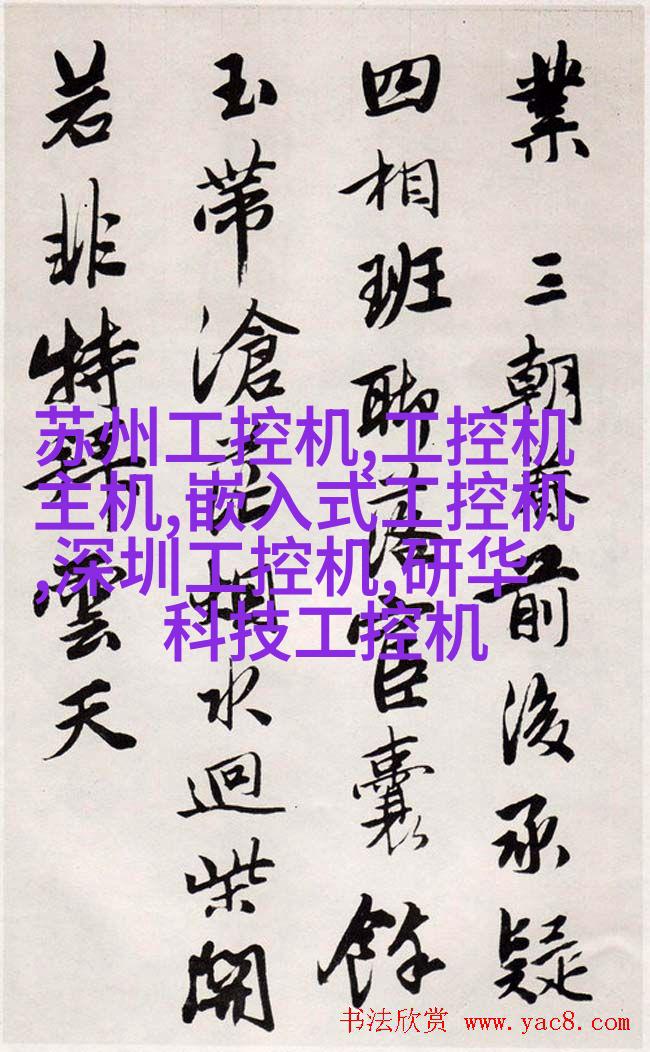 業 三朝前後承疑
四相班聯落宦囊餘
玉帶滄水迴柴開
若非特雲天
苏州工控机,工控机
主机,嵌入式工控机
,深圳工控机,研华
科技工控机
书法欣赏 www.yac8.com